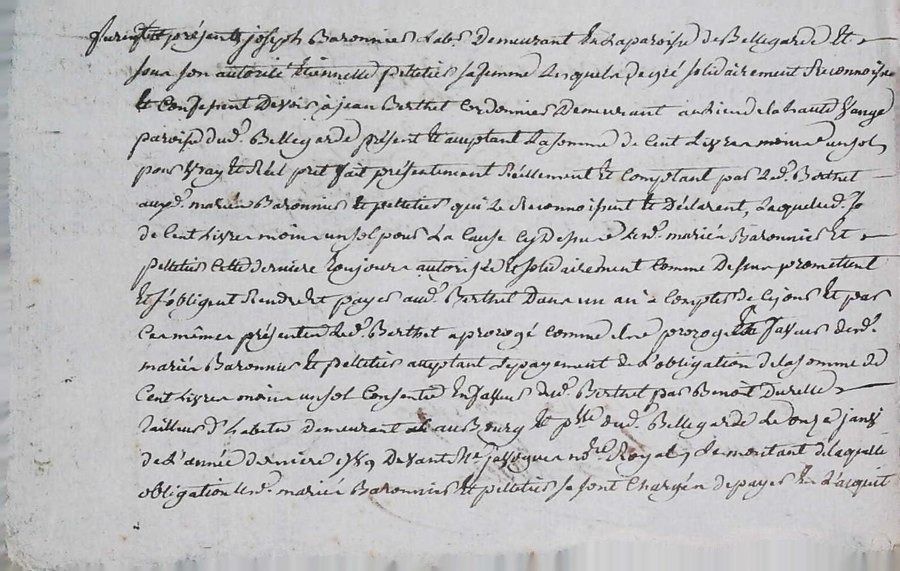 furent présents joseph Baronnier Lab.r Demeurant En La paroisse de Bellegarde Et
sous son autorité Etiennette pelletier sa femme Lesquels de gré solidairement Reconnoissent
Et Confessent Devoir à jean Berthet Cordonnier Demeurant au lieu de la haute
paroisse dud. Bellegarde présent Et acceptant La somme de Cent Livres moins un sol
pour vray Et Réel pret fait présentement Réellement Et Comptant par Led. Berthet
auxd. mariés Baronnier Et pelletier qui Le Reconnoissent Et Déclarent, Laquelle d. so
de Cent Livres moins un sol pour La Cause Cy Dessus Lesd. mariés Baronnier Et
pelletier Cette derniere toujours autorisée Et solidairement Comme Dessus promettent
Et s'obligent Rendre Et payer aud. Berthet Dans un an à Compter de Ce jour Et par
Ces mêmes présentes Led. Berthet a prorogé comme il proroge En faveur desd.
mariés Baronnier Et pelletier acceptant Le payement de L'obligation de la somme de
Cent Livres moins un sol Consentie En faveur dud. Berthet par Benoit Durelle
tailleur d'habits demeurant au Bourg Et psse dud. Bellegarde Le onze janv.
de L'année derniere 1789 Devant No.re Royal, Le montant de laquelle
obligation Lesd. mariés Baronnier Et pelletier se sont Chargés de payer En L'acquit